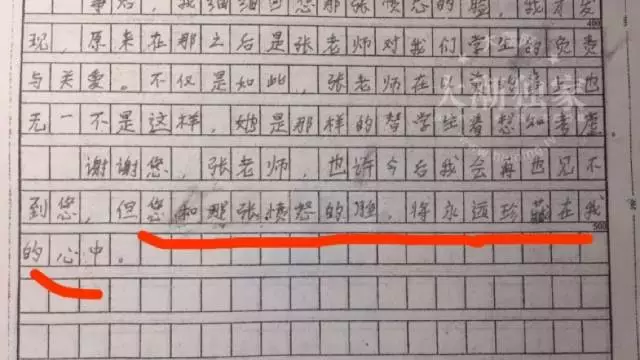 事后，我细细回想那张愤怒的脸，我才发
400
现，原来在那之后是张老师对我们学生的负责
与关爱。不仅是如此，张老师在
也
无一不是这样，她是那样的替学生着想和考虑
谢谢您，张老师，也许今后我会再也见不
到您，但您和那张愤怒的脸，将永远珍藏在我
500
的心中。
大潮独家